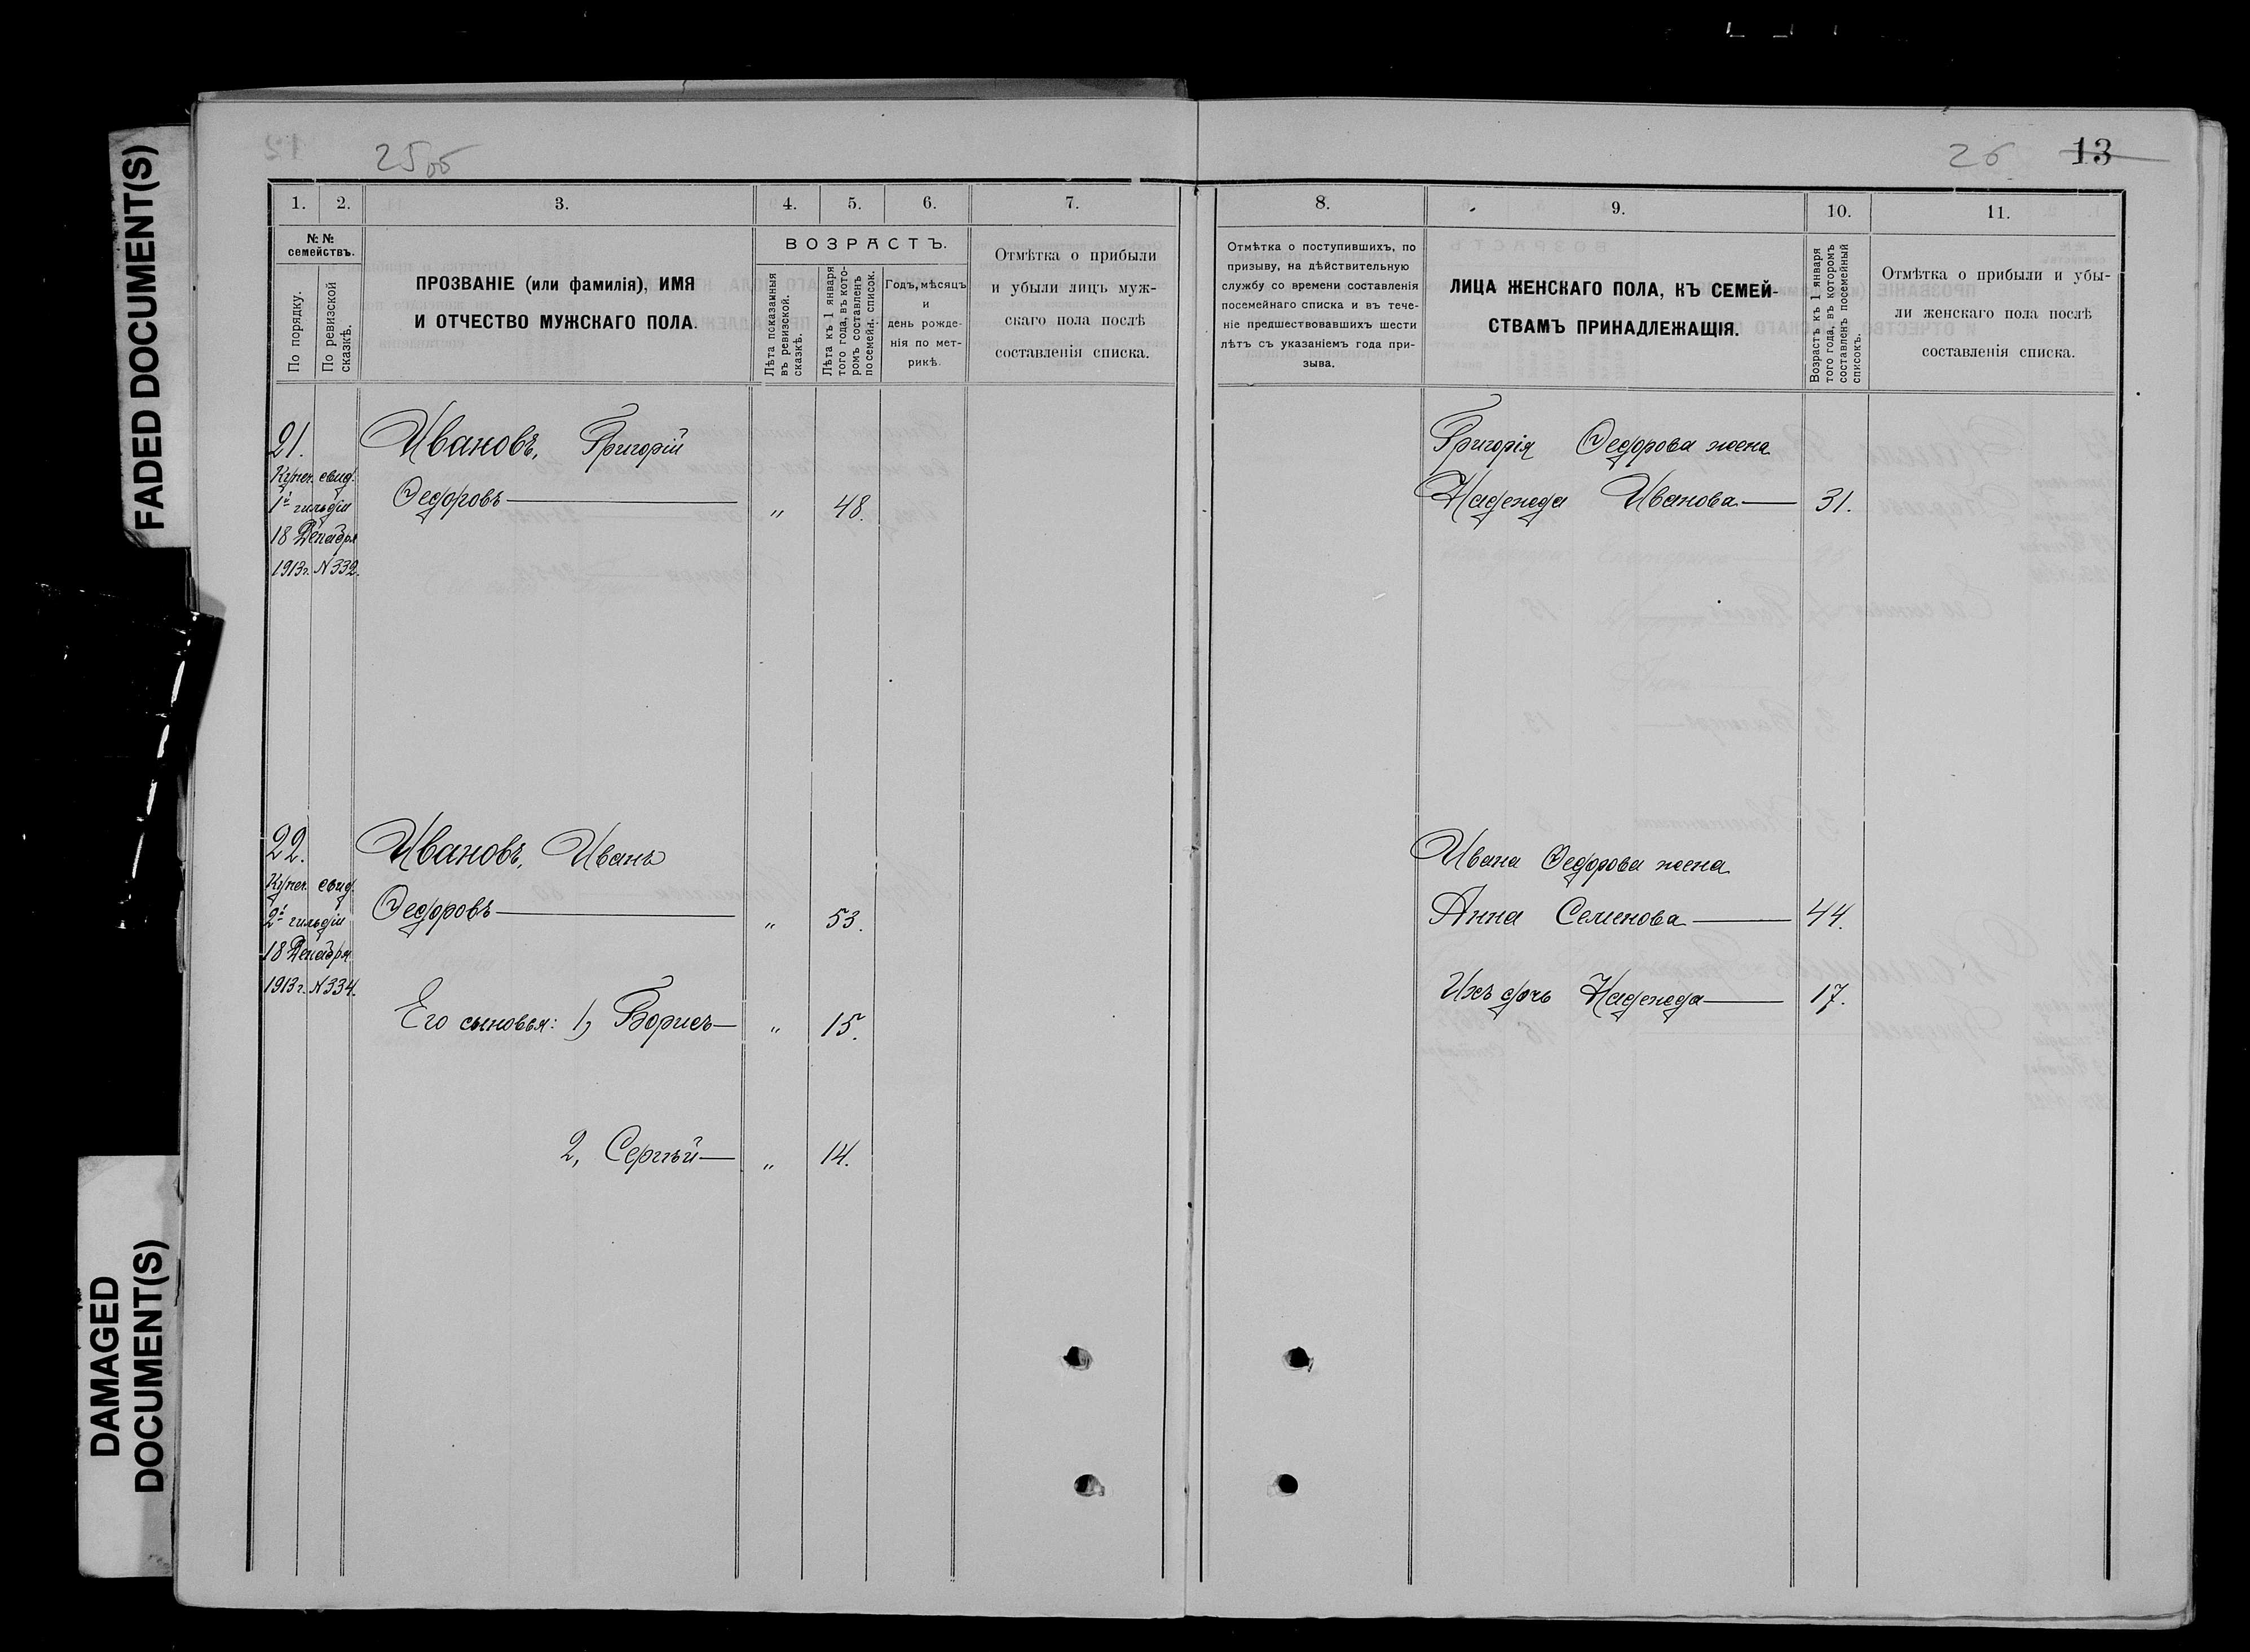 FADED DOCUMENT(S)
DAMAGED
DOCUMENT(S)
25об
1. 2. 3. 4. 5. 6. 7.
№ №
семействъ.
По порядку.
По ревизской
сказкѣ.
ПРОЗВАНІЕ (или фамилія), ИМЯ
И ОТЧЕСТВО МУЖСКАГО ПОЛА.
ВОЗРАСТЪ.
Лѣта показанныя
въ ревизской
сказкѣ.
Лѣта къ 1 января
того года, въ кото-
ромъ составленъ
посемейн. список.
Годъ, мѣсяцъ
и
день рожде-
нія по мет-
рикѣ.
Отмѣтка о прибыли
и убыли лицъ муж-
скаго пола послѣ
составленія списка.
21. Ивановъ, Григорій
Купеч. свид.
1й гильдіи Ѳедоровъ „ 48.
18 Декабря
1913 г. N 332.
22. Ивановъ, Иванъ
Купеч. свид.
2й гильдіи Ѳедоровъ „ 53.
18 Декабря
1913 г. N 334.
Его сыновья: 1, Борисъ „ 15.
2, Сергѣй „ 14.
26 13
8. 9. 10. 11.
Отмѣтка о поступившихъ, по
призыву, на дѣйствительную
службу со времени составленія
посемейнаго списка и въ тече-
ніе предшествовавшихъ шести
лѣтъ съ указаніемъ года при-
зыва.
ЛИЦА ЖЕНСКАГО ПОЛА, КЪ СЕМЕЙ-
СТВАМЪ ПРИНАДЛЕЖАЩІЯ.
Возрастъ къ 1 января
того года, въ которомъ
составленъ посемейный
списокъ.
Отмѣтка о прибыли и убы-
ли женскаго пола послѣ
составленія списка.
Григорія Ѳедорова жена
Надежда Иванова 31.
Ивана Ѳедорова жена
Анна Семенова 44.
Ихъ дочь Надежда 17.